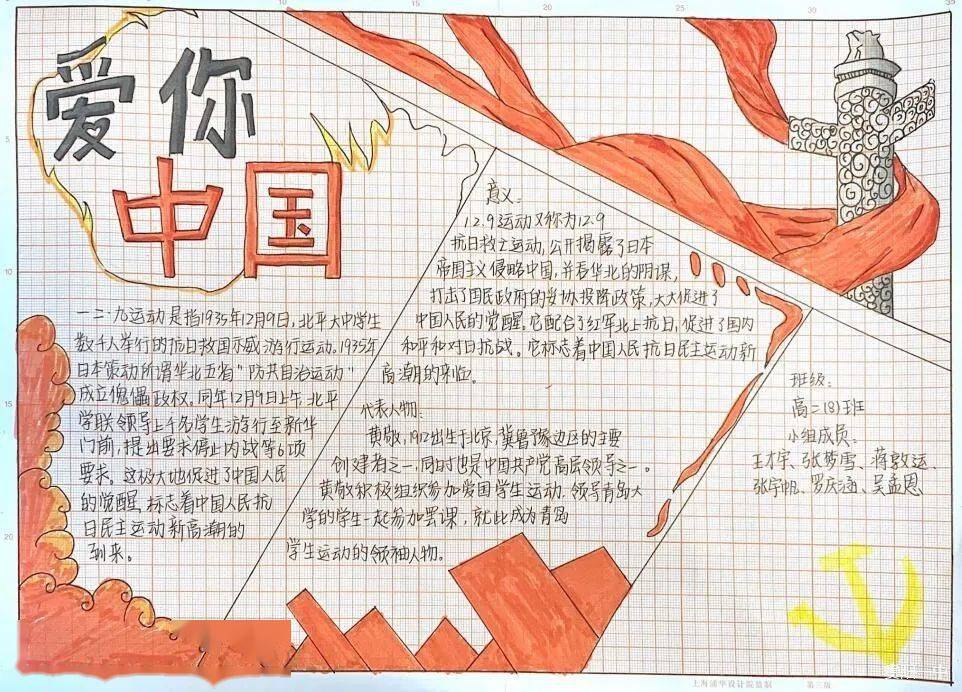 爱你
中国
一二·九运动是指1935年12月9日,北平大中学生
数千人举行的抗日救国示威游行运动。1935年
日本策动所谓华北五省"防共自治运动"
成立傀儡政权。同年12月9日上午,北平
学联领导上千名学生游行至新华
门前,提出要求停止内战等6项
要求。这极大地促进了中国人民
的觉醒,标志着中国人民抗
日民主运动新高潮的
到来。
意义:
12.9运动又称为12.9
抗日救亡运动,公开揭露了日本
帝国主义侵略中国,并吞华北的阴谋,
打击了国民政府的妥协投降政策,大大促进了
中国人民的觉醒。它配合了红军北上抗日,促进了国内
和平和对日抗战。它标志着中国人民抗日民主运动新
高潮的来临。
代表人物:
黄敬,1912出生于北京,冀鲁豫边区的主要
创建者之一,同时也是中国共产党高层领导之一。
黄敬积极组织参加爱国学生运动,领导青岛大
学的学生一起参加罢课,就此成为青岛
学生运动的领袖人物。
班级:
高二(8)班
小组成员:
王才宇、张梦雪、蒋敦运、
张宇帆、罗庆涵、吴孟恩
5
10
15
20
20
25
30
35
上海浦华设计院监制
第三版